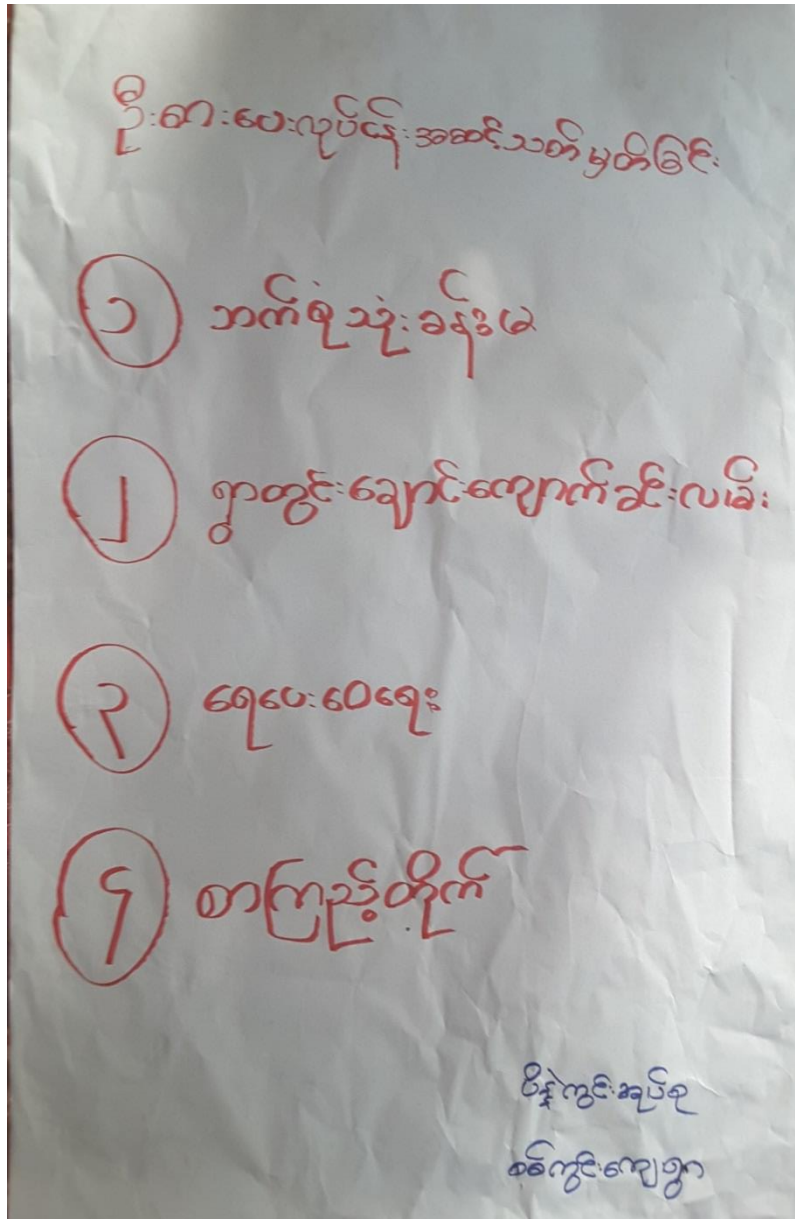 ဦးစားပေးလုပ်ငန်းအဆင့်သတ်မှတ်ခြင်း
၁ ဘက်စုံသုံးခန်းမ
၂ ရွာတွင်းချောင်းကျောက်ခင်းလမ်း
၃ ရေပေးဝေရေး
၄ စာကြည့်တိုက်
ပိန္နဲကွင်းအုပ်စု
စစ်ကွင်းကျေးရွာ